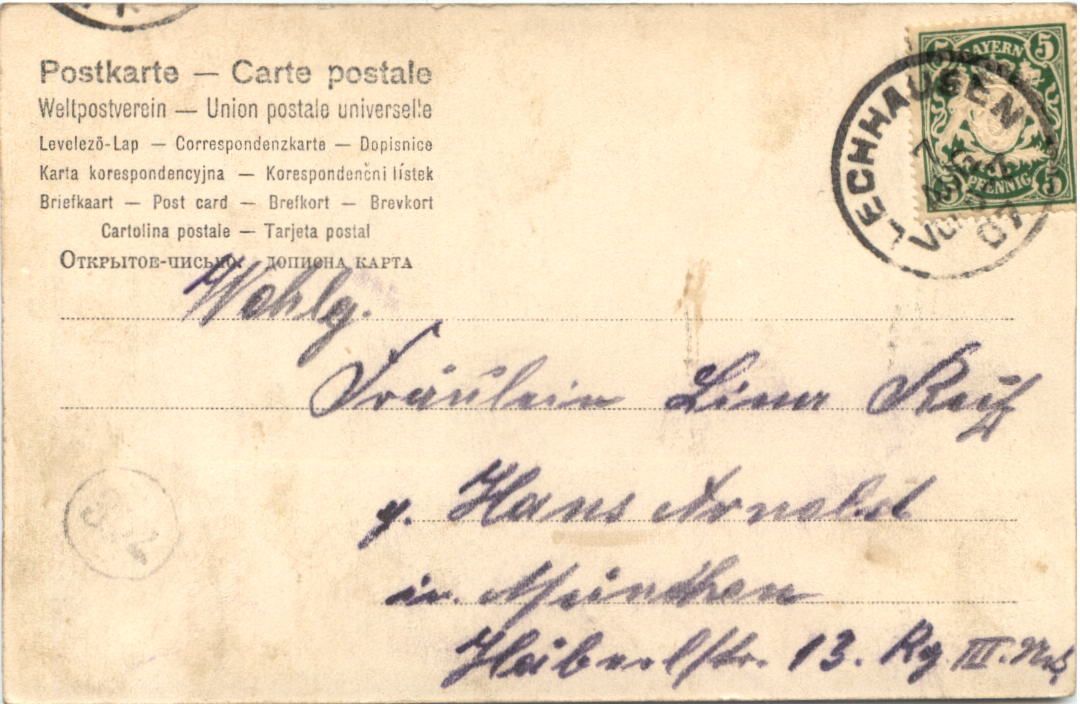 Postkarte — Carte postale
Weltpostverein — Union postale universelle
Levelező-Lap — Correspondenzkarte — Dopisnice
Karta korespondencyjna — Korespondenční lístek
Briefkaart — Post card — Brefkort — Brevkort
Cartolina postale — Tarjeta postal
Открытое-письмо. дописна карта
BAYERN
5 5
5 5
PFENNIG
LECHHAUSEN
07
Wohlg.
Fräulein Lina
Hans Arnold
in München
13. Rg. III.